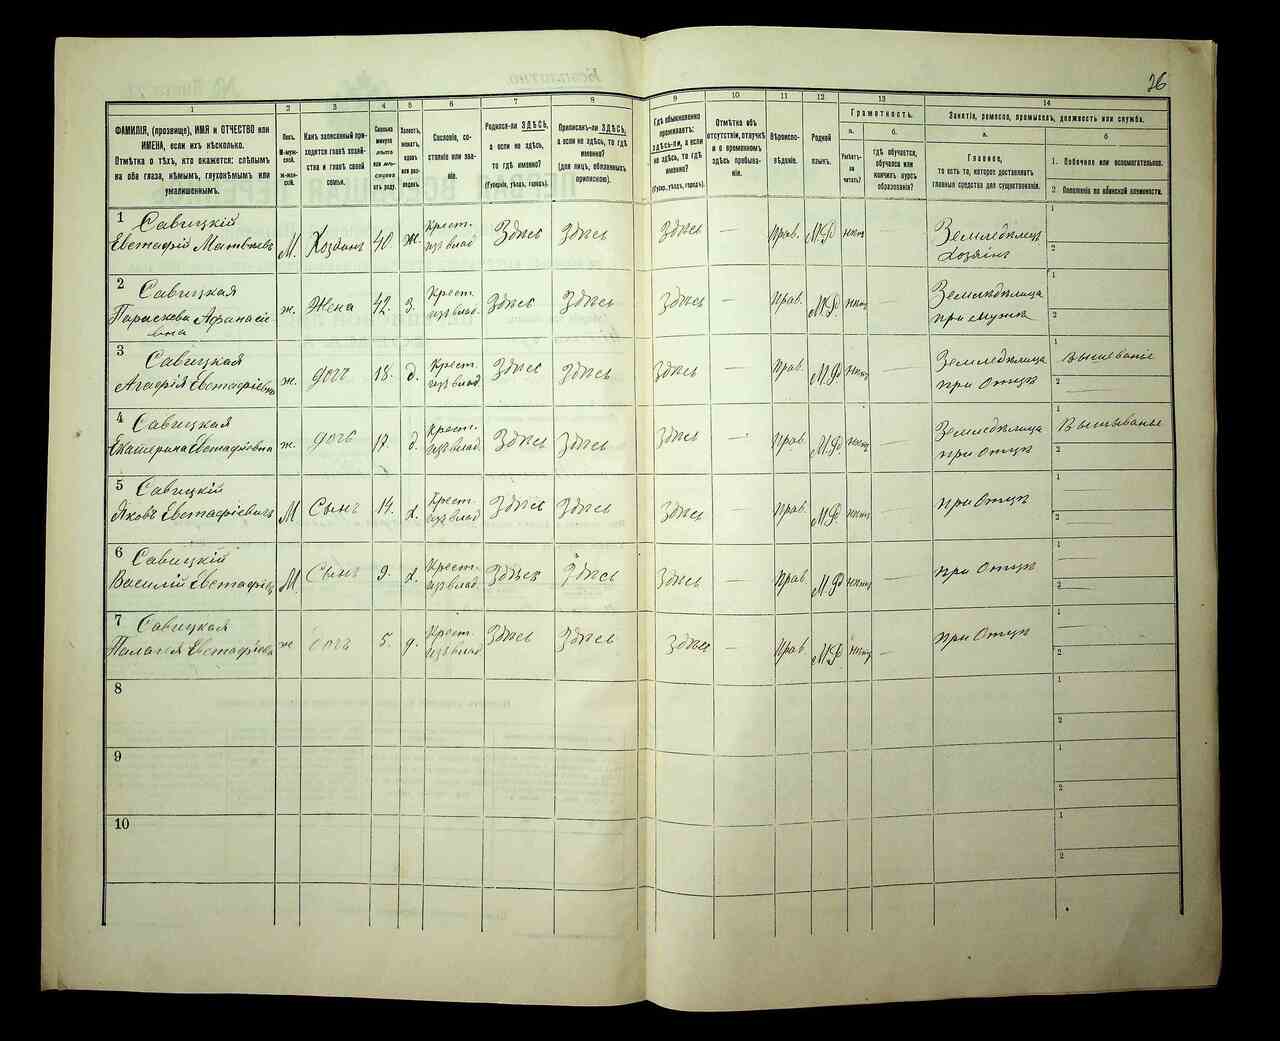 26
1
2
3
4
5
6
7
8
9
10
11
12
13
14
ФАМИЛІЯ, (прозвище), ИМЯ и ОТЧЕСТВО или
ИМЕНА, если ихъ нѣсколько.
Отмѣтка о тѣхъ, кто окажется: слѣпымъ
на оба глаза, нѣмымъ, глухонѣмымъ или
умалишеннымъ.
Полъ.
М-муж-
ской.
ж-жен-
скій.
Какъ записанный при-
ходится главѣ хозяй-
ства и главѣ своей
семьи.
Сколько
минуло
лѣтъ
или мѣ-
сяцевъ
отъ роду.
Холостъ,
женатъ,
вдовъ
или раз-
веденъ.
Сословіе, со-
стояніе или зва-
ніе.
Родился-ли ЗДѢСЬ,
а если не здѣсь,
то гдѣ именно?
(Губернія, уѣздъ, городъ).
Приписанъ-ли ЗДѢСЬ,
а если не здѣсь, то гдѣ
именно?
(для лицъ, обязанныхъ
припискою).
Гдѣ обыкновенно
проживаетъ:
здѣсь-ли, а если
не здѣсь, то гдѣ
именно?
(Губер., уѣздъ, городъ).
Отмѣтка объ
отсутствіи, отлучкѣ
и о временномъ
здѣсь пребыва-
ніи.
Вѣроиспо-
вѣданіе.
Родной
языкъ.
Грамотность.
а.
Умѣетъ-
ли
читать?
б.
гдѣ обучается,
обучался или
кончилъ курсъ
образованія?
Занятіе, ремесло, промыселъ, должность или служба.
а.
Главное,
то есть то, которое доставляетъ
главныя средства для существованія.
б
1. Побочное или вспомогательное.
2. Положеніе по воинской повинности.
1 Савицкій
Евстафій Матвѣевъ М. Хозяинъ 40 ж. Крест. изъ влад. Здѣсь Здѣсь Здѣсь — Прав. М.Р. нѣтъ Земледѣлецъ
Хозяинъ
1
2
2 Савицкая
Параскева Афанасіе
вна ж. Жена 42. З. Крест. изъ влад. Здѣсь Здѣсь Здѣсь — Прав. М.Р. нѣтъ — Земледѣлица
при мужѣ
1
2
3 Савицкая
Агафія Евстафіевна ж. дочь 18. д. Крест. изъ влад. Здѣсь Здѣсь Здѣсь — Прав. М.Р. нѣтъ — Земледѣлица
при Отцѣ
1 Вышеваніе
2 —
4 Савицкая
Екатерина Евстафіевна ж. дочь 17. д. Крест. изъ влад. Здѣсь Здѣсь Здѣсь — Прав. М.Р. нѣтъ — Земледѣлица
при Отцѣ
1 Вышыванье
2 —
5 Савицкій
Яковъ Евстафіевичъ М Сынъ 14. х. Крест. изъ влад. Здѣсь Здѣсь Здѣсь — Прав. М.Р. нѣтъ — при Отцѣ
1 —
2 —
6 Савицкій
Василій Евстафіев М. Сынъ 9. х. Крест. изъ влад. Здѣсь Здѣсь Здѣсь — Прав. М.Р. нѣтъ — при Отцѣ
1 —
2 —
7 Савицкая
Палагея Евстафіева ж дочь 5. д. Крест. изъ влад Здѣсь Здѣсь Здѣсь — Прав. М.Р. нѣтъ — при Отцѣ
1 —
2 —
8
1
2
9
1
2
10
1
2